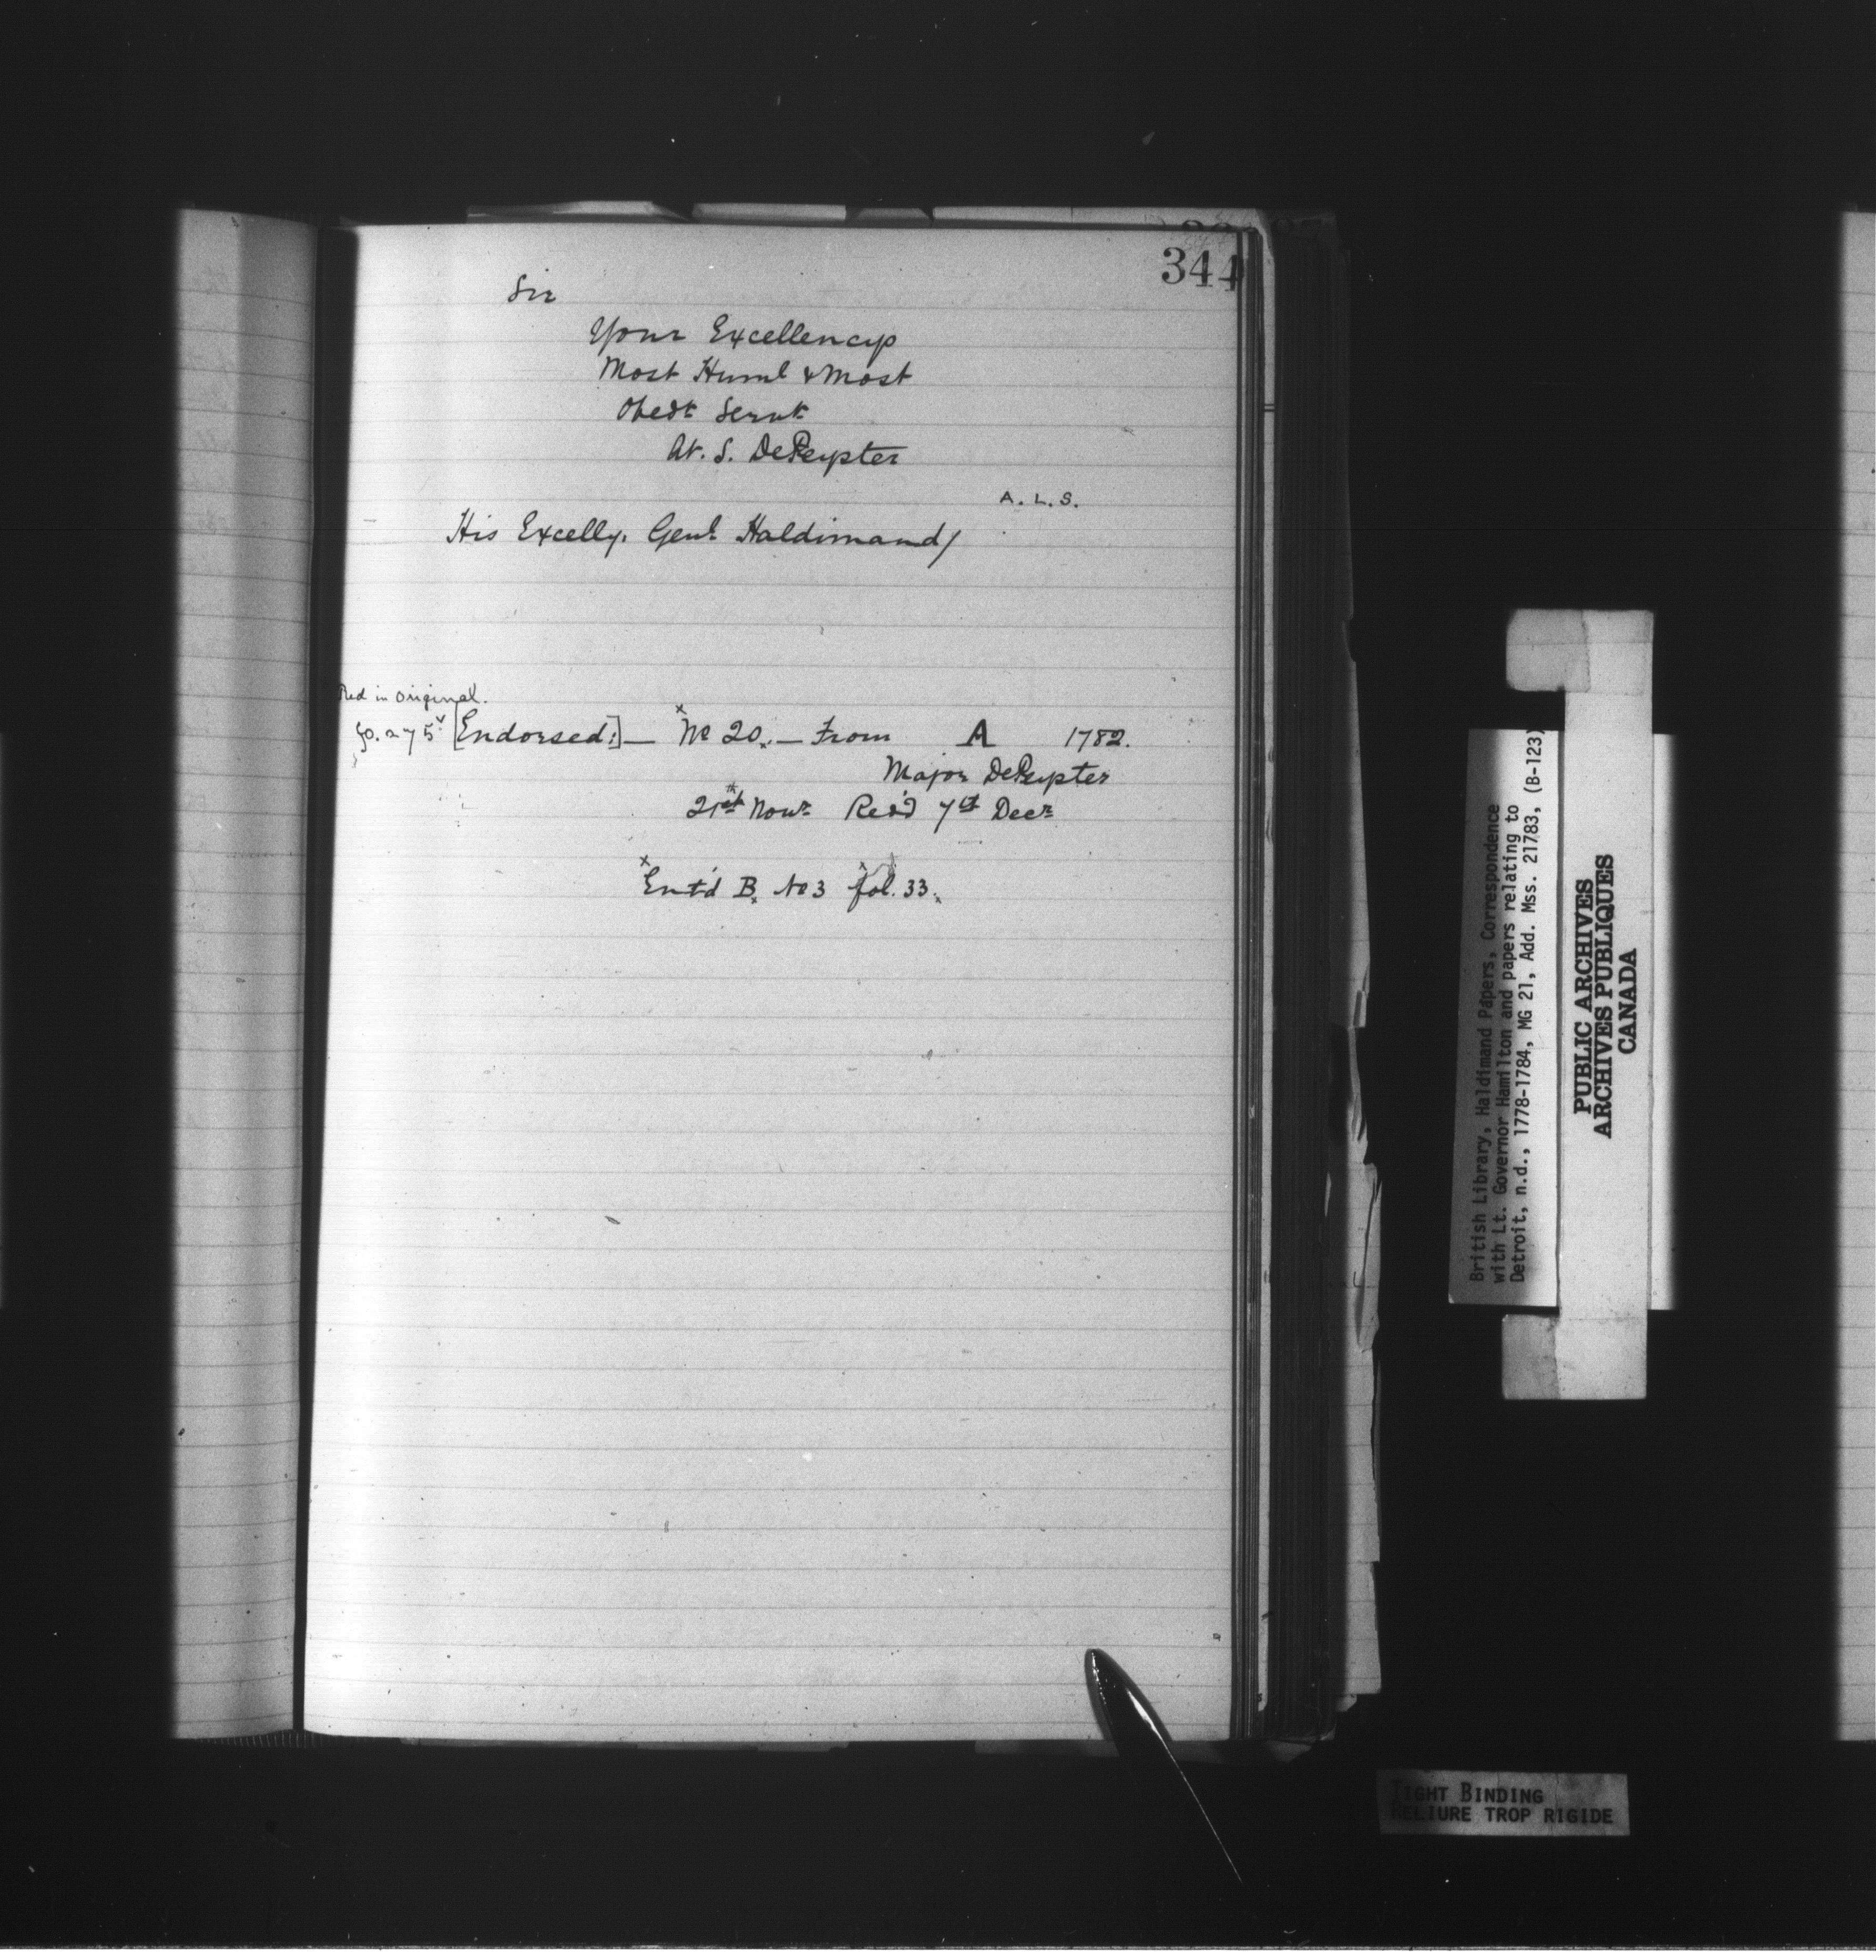 344
Sir
Your Excellencys
Most Huml & Most
Obedt Servt
At. S. DePeyster
A. L. S.
His Excelly. Genl Haldimand/
Red in Original.
fo. 275v [Endorsed:] — No 20. — From A 1782.
Major DePeyster
21st Novr Recd 7th Decr
Ent'd B. No 3 fol. 33.
British Library, Haldimand Papers, Correspondence
with Lt. Governor Hamilton and papers relating to
Detroit, n.d., 1778-1784, MG 21, Add. Mss. 21783, (B-123)
PUBLIC ARCHIVES
ARCHIVES PUBLIQUES
CANADA
TIGHT BINDING
RELIURE TROP RIGIDE